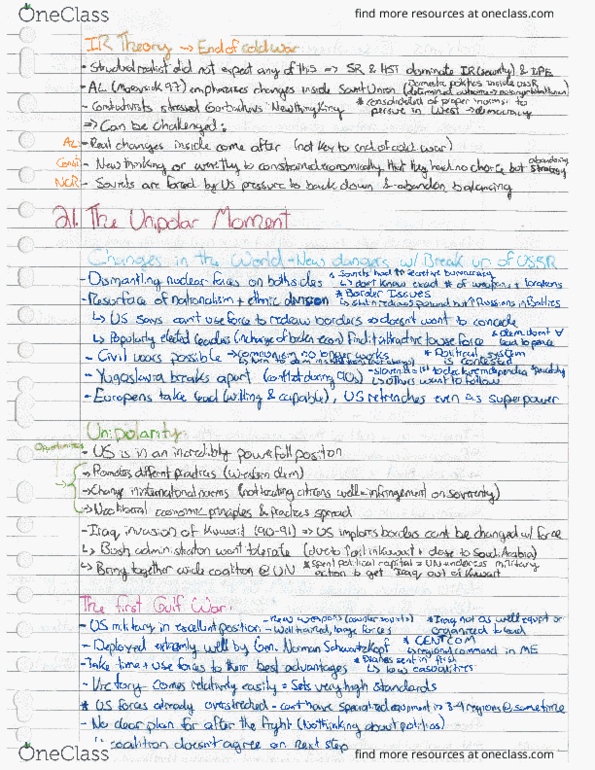 OneClass
find more resources at oneclass.com
IR Theory → End of cold war
- Structural realist did not expect any of this => SR & HST dominate IR (security) & IPE
- AL (Moravsik 97) emphasizes changes inside Soviet Union (Domestic politics inside USSR
- Constructivists stressed Gorbachevs New thinking * consolidation of proper norms to
persue in West → democracy
=> Can be challenged:
AL - Real changes inside come after (not key to end of cold war)
Const - New thinking or were they so constrained economically that they had no choice but abandoning strategy
NCR - Soviets are forced by US pressure to back down & abandon balancing
21. The Unipolar Moment
Changes in the World - New dangers w/ Break up of USSR
- Dismantling nuclear forces on both sides * Soviets had secretive bureaucracy
↳ don't know exact # of weapons + locations
- Resurface of nationalism + ethnic division * Border Issues
Russians in Baltics
↳ US says cant use force to redraw borders → doesn't want to concede
↳ Popularly elected leaders (in charge of broken econ) find it attractive to use force * dem. dont
lead to peace
- Civil wars possible → communism no longer works * Political system
is contested
- Yugoslavia breaks apart (conflict during 90s) - slovenia = 1st to declare independence
↳ others want to follow
- Europens take lead (willing & capable), US retrenches even as superpower
Unipolarity
Opportunities
- US is in an incredibly powerfull position
→ Promotes different practices (Western dem)
→ Change in international norms (not treating citizens well = infringement on soverenty)
→ Neoliberal economic principles & practices spread
- Iraq invasion of Kuwait (90-91) => US implores borders cant be changed w/ force
↳ Bush administration wont tolerate (due to oil in Kuwait + close to Saudi Arabia)
↳ Bring together wide coalition @ UN * spent political capital = UN endorses military
action to get Iraq out of Kuwait
The first Gulf War:
- US military in excellent position - New weapons (counter soviets) * Iraq not as well equipt or
- Well trained, large forces organized to lead
- Deployed extremly well by Gen. Norman Schwartzkopf * CENTCOM
↳ regional command in ME
- Take time + use forces to their best advantages
↳ low casualties
- Victory comes relatively easily = Sets very high standards
* US forces already overstreched - cant have specialized equipment in 3-4 regions @ sametime
- No clear plan for after the fight (Not thinking about politics)
↳ coalition doesn't agree on next step
OneClass
find more resources at oneclass.com